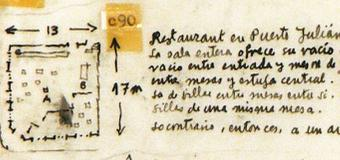 13
c90
17m
A
B
Restaurant en Puerto Julián
La sala entera ofrece su vacío
vacío entre entrada y mesón de
entre mesas y estufa central.
entre mesas entre sí.
sillas de una misma mesa.
lo contrario, entonces, a un